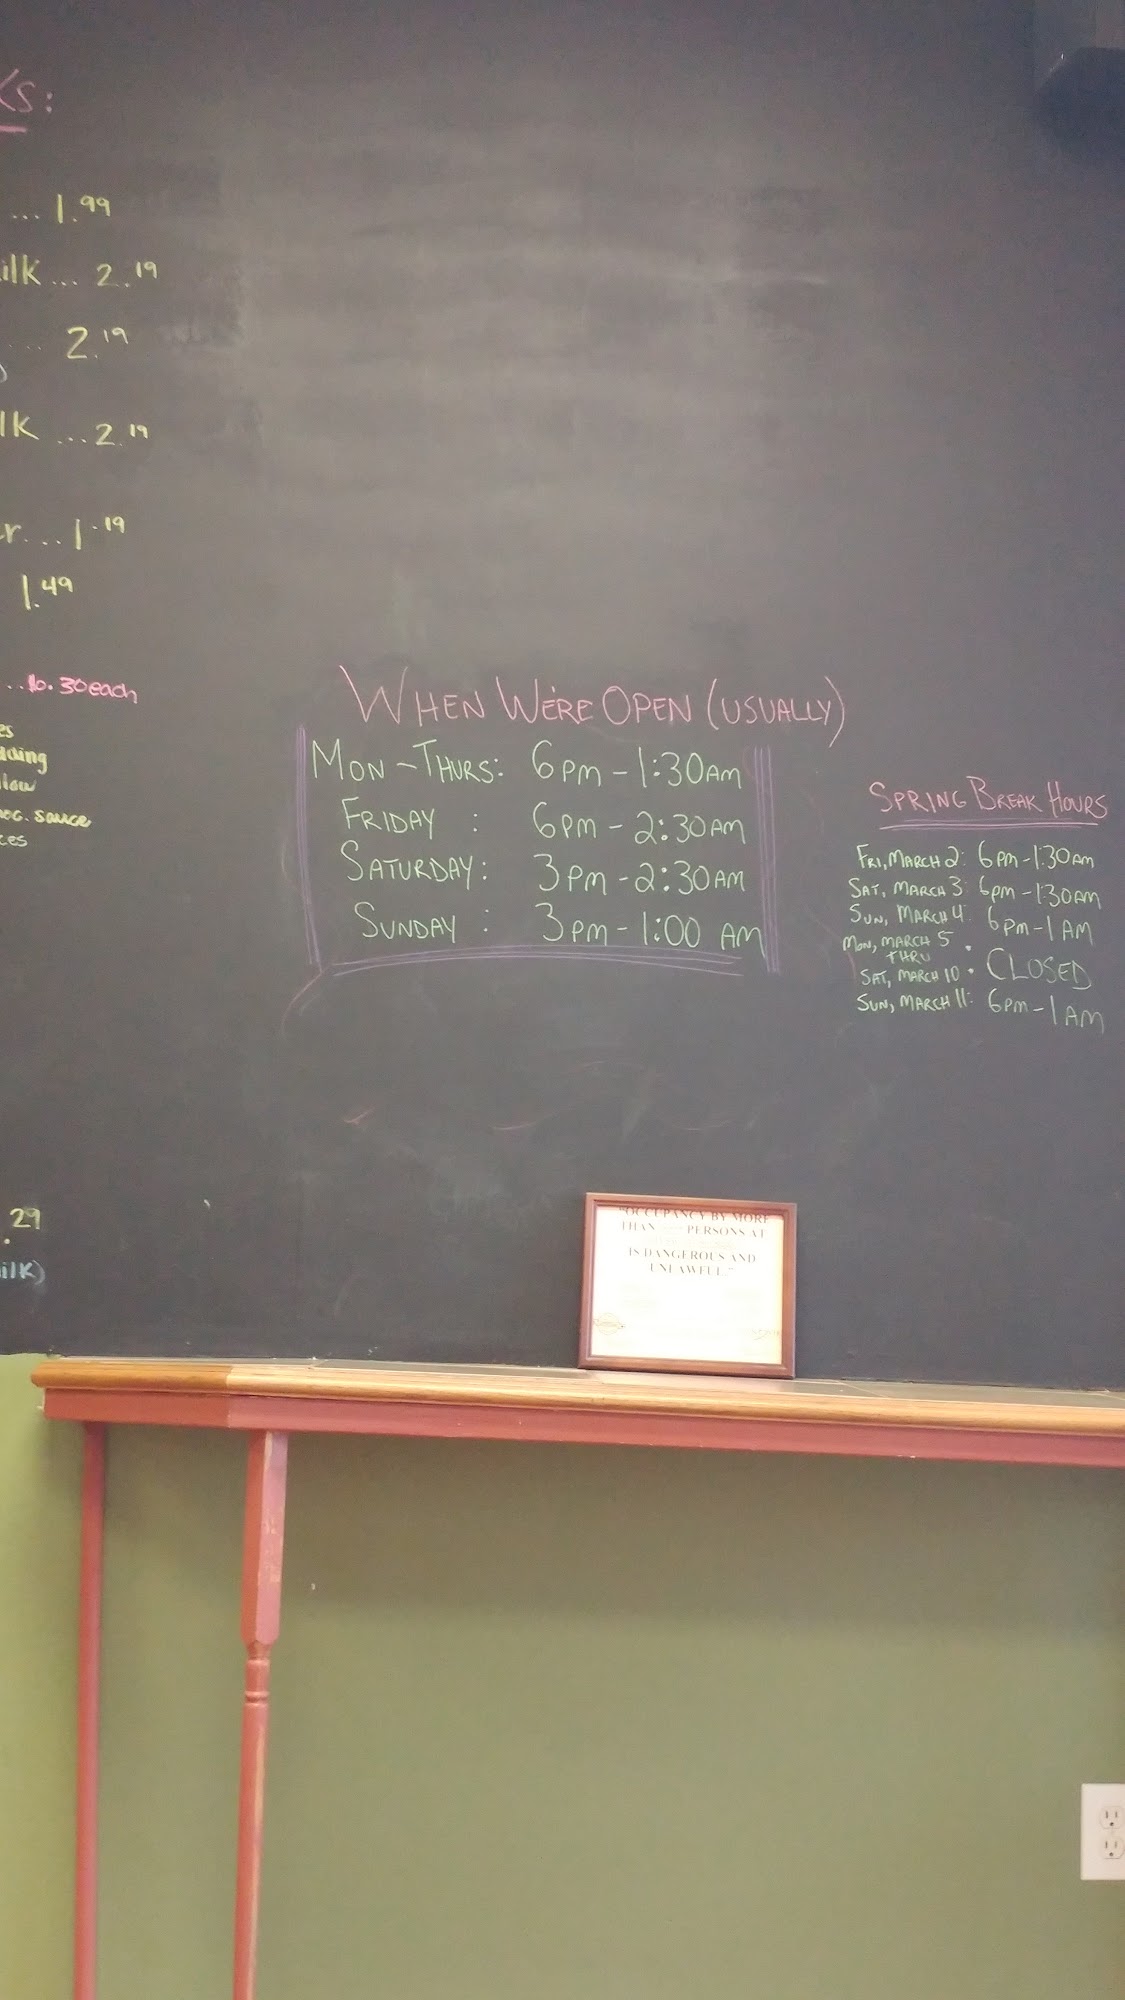 ks:
... 1.99
ilk ... 2.19
... 2.19
lk ... 2.19
er... 1.19
1.49
.30 each
es
dding
llow
oc. sauce
ces
.29
ilk)
WHEN WE'RE OPEN (USUALLY)
MON-THURS: 6PM-1:30AM
FRIDAY : 6PM-2:30AM
SATURDAY: 3PM-2:30AM
SUNDAY : 3PM-1:00 AM
SPRING BREAK HOURS
FRI, MARCH 2: 6PM-1:30AM
SAT, MARCH 3: 6PM-1:30AM
SUN, MARCH 4: 6PM-1AM
MON, MARCH 5
THRU : CLOSED
SAT, MARCH 10
SUN, MARCH 11: 6PM-1AM
"OCCUPANCY BY MORE
THAN PERSONS AT
IS DANGEROUS AND
UNLAWFUL."